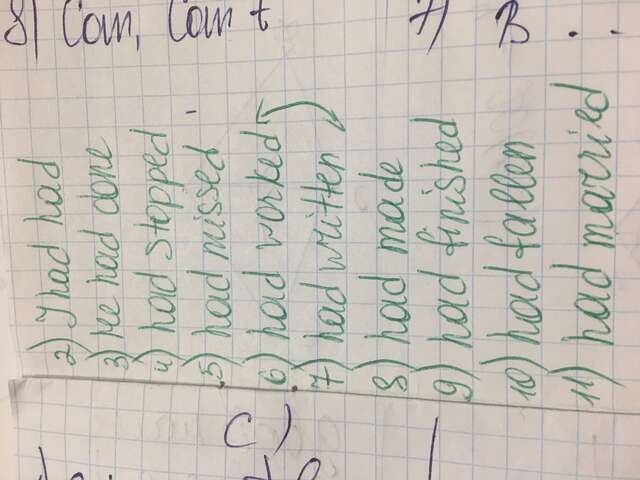 8) Can, Can't
7) B ...
2) I had had
3) He had done
4) had stepped
5) had missed
6) had worked
7) had written
8) had made
9) had finished
10) had fallen
11) had married
C)